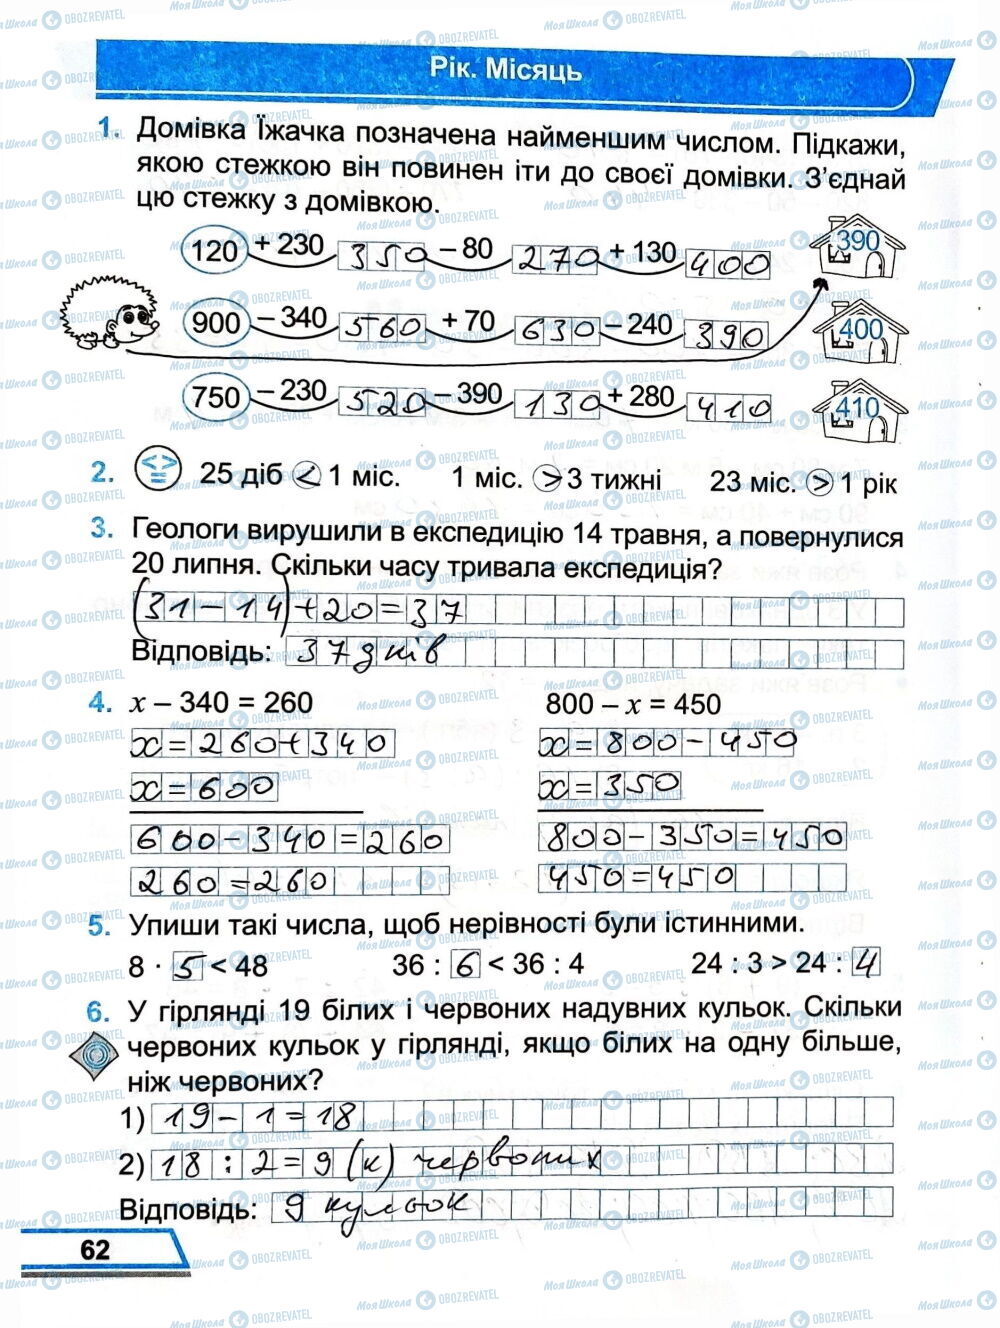 Рік. Місяць
1. Домівка Їжачка позначена найменшим числом. Підкажи,
якою стежкою він повинен іти до своєї домівки. З’єднай
цю стежку з домівкою.
120 + 230 350 – 80 270 + 130 400 390
900 – 340 560 + 70 630 – 240 390 400
750 – 230 520 – 390 130 + 280 410 410
2. < = > 25 діб < 1 міс. 1 міс. > 3 тижні 23 міс. > 1 рік
3. Геологи вирушили в експедицію 14 травня, а повернулися
20 липня. Скільки часу тривала експедиція?
(31-14)+20=37
Відповідь: 37 днів
4. x – 340 = 260 800 – x = 450
x=260+340 x=800-450
x=600 x=350
600-340=260 800-350=450
260=260 450=450
5. Упиши такі числа, щоб нерівності були істинними.
8 · 5 < 48 36 : 6 < 36 : 4 24 : 3 > 24 : 4
6. У гірлянді 19 білих і червоних надувних кульок. Скільки
червоних кульок у гірлянді, якщо білих на одну більше,
ніж червоних?
1) 19-1=18
2) 18:2=9 (к) червоних
Відповідь: 9 кульок
62
МояШкола OBOZREVATEL